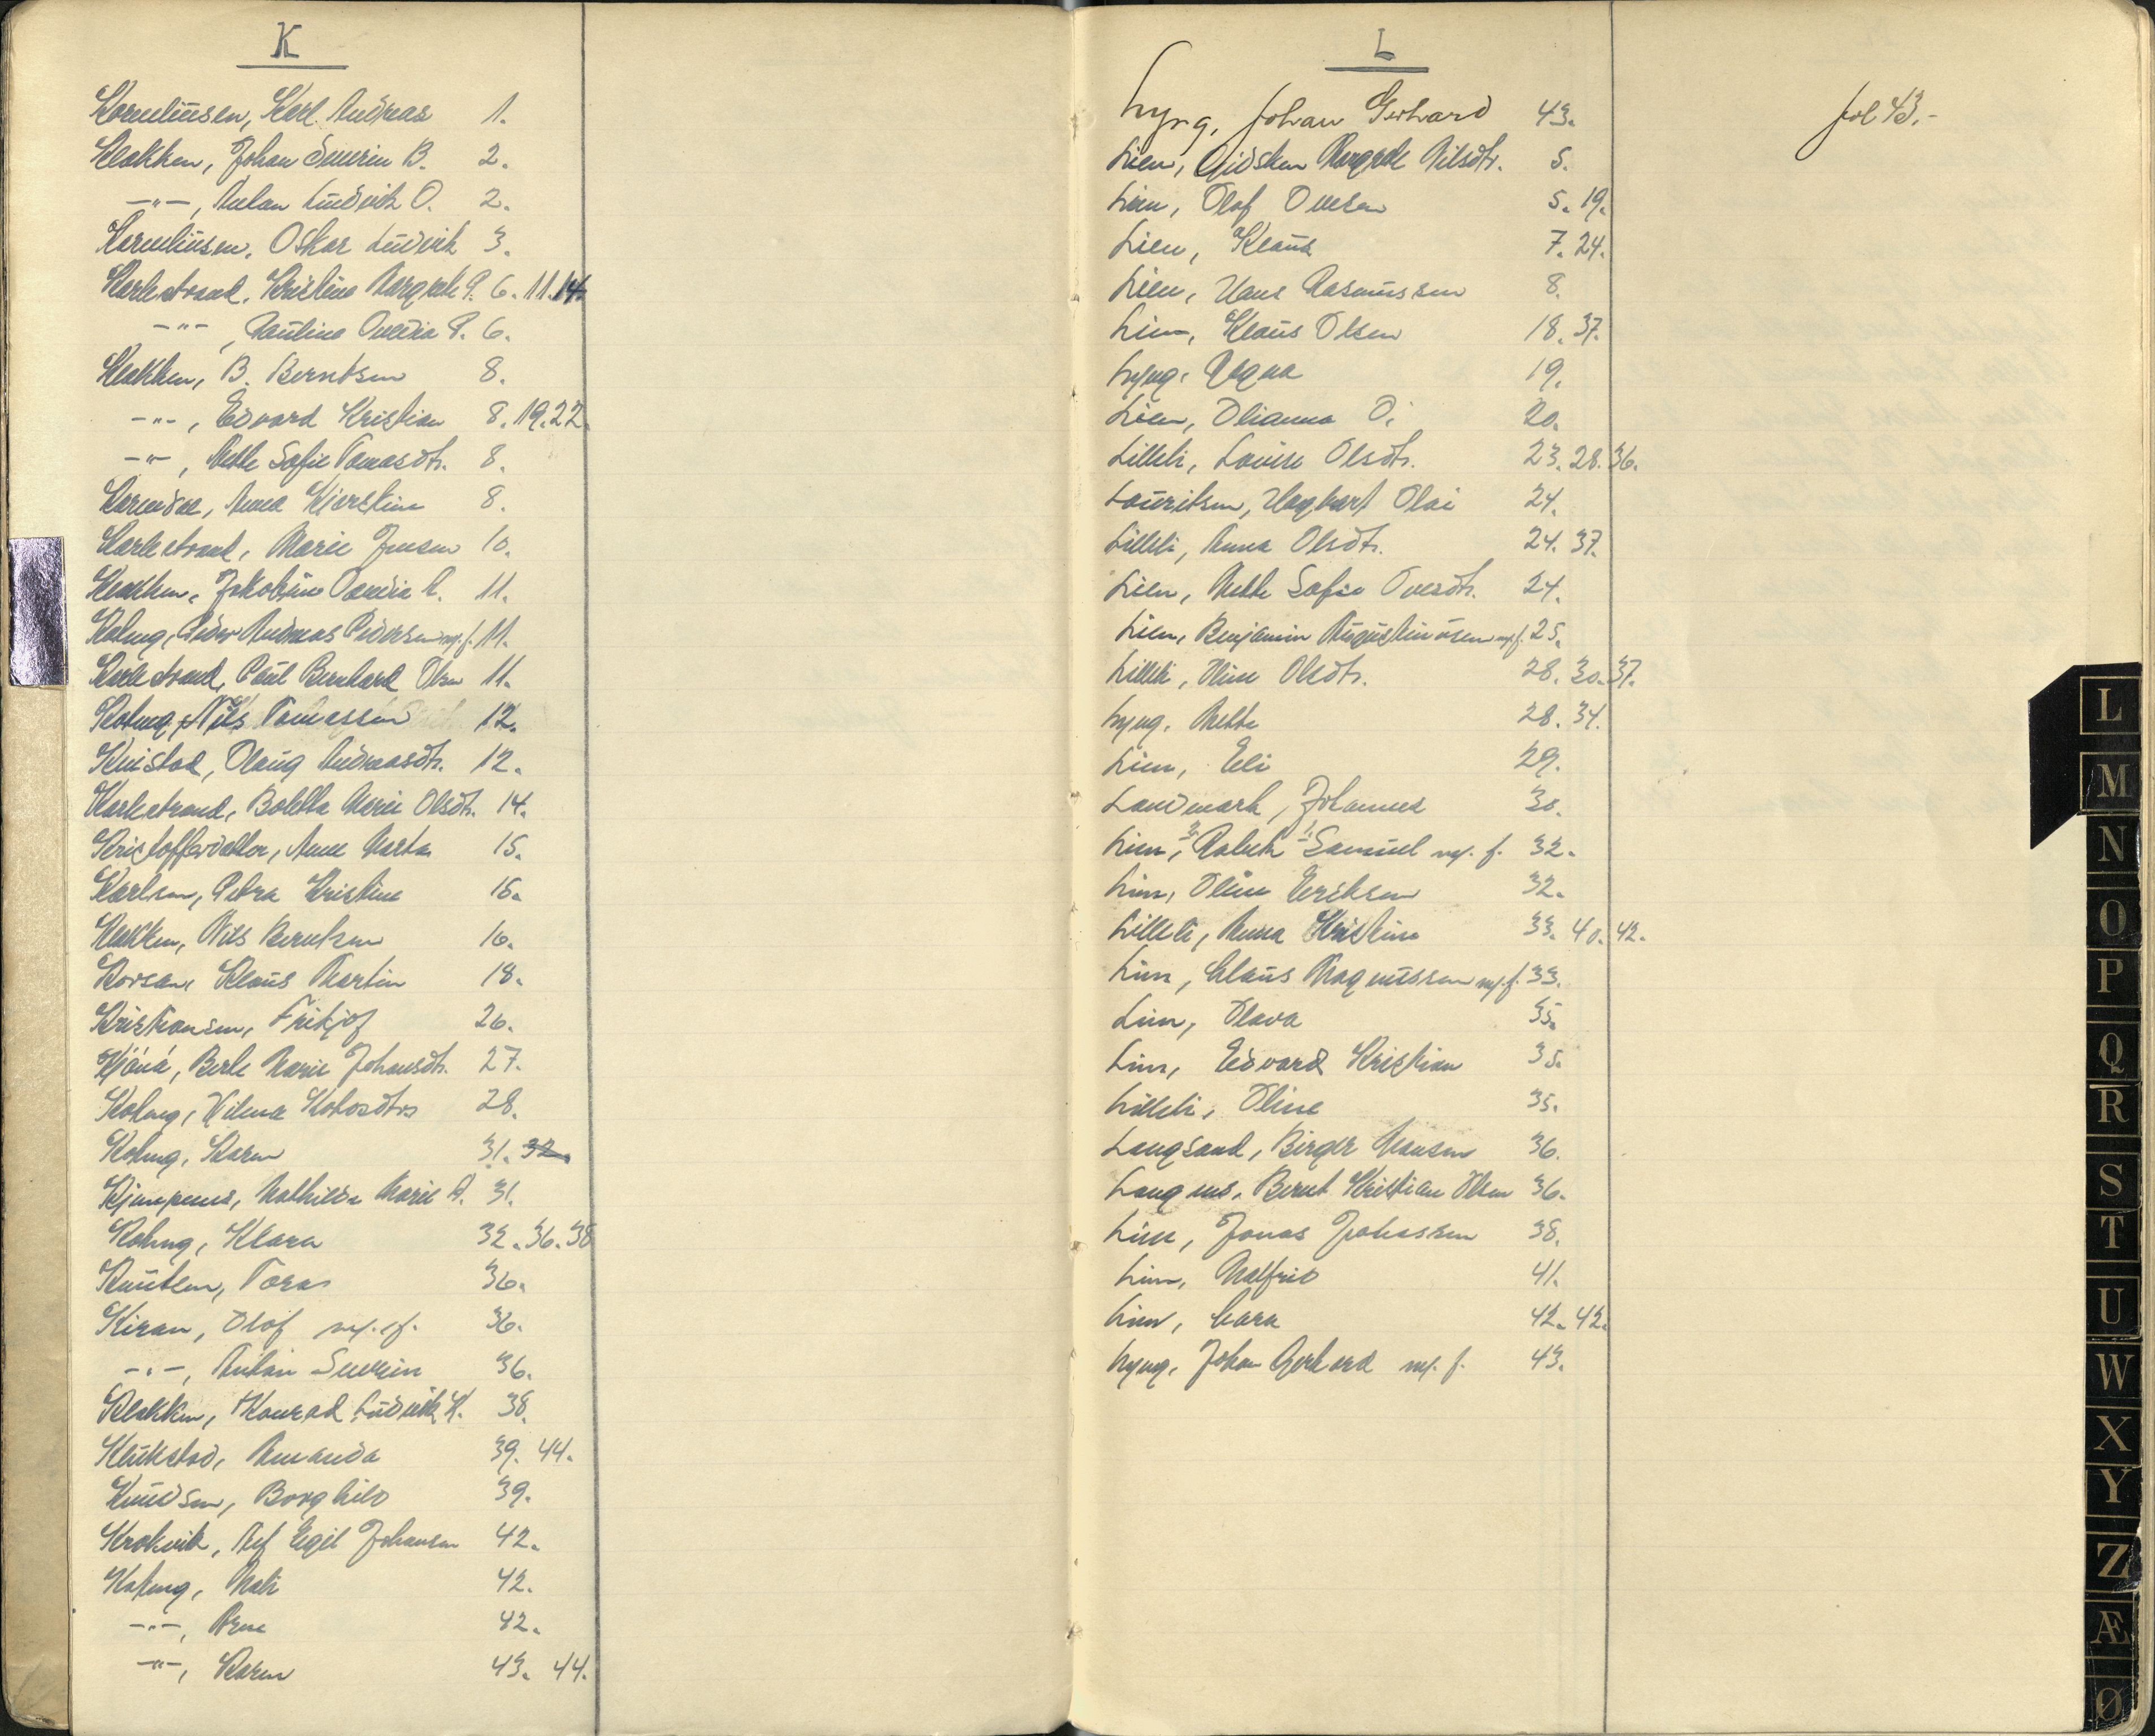 K
Korneliusen, Karl Andreas 1.
Klakken, Johan Severin B. 2.
-"-, Anton Ludvik O. 2.
Korneliusen, Oskar Ludvik 3.
Karlsstrand, Kristine Margrete P. 6. 11. 14.
-"-, Pauline Ovedia P. 6.
Klakken, B. Berntsen 8.
-"-, Edvard Kristian 8. 19. 22.
-"-, Mette Sofie Tomasdtr. 8.
Anna Kjerstine 8.
Karlsstrand, Marie Jensen 10.
Klakken, Jakobine 11.
Koleng, Peder Andreas Pedersen m/f. 11.
Karlsstrand, Paul Bernhard Olsen 11.
Koleng, Nils Tomassen 12.
Olaug Andreasdtr. 12.
Karlsstrand, Bolette Marie Olsdtr. 14.
Kristofferdatter, Anne Marta 15.
Karlsen, Petra Kristine 16.
Klakken, Nils Berntsen 16.
Korsan, Klaus Martin 18.
Kristiansen, Fritjof 26.
Berte Marie Johansdtr. 27.
Koleng, Vilma 28.
Koleng, Karen 31. 32.
Mathilde Marie A. 31.
Koleng, Klara 32. 36. 38
Knutsen, Tora 36.
Kiran, Olof m/f. 36.
-"-, Anton Severin 36.
Klakken, Konrad Ludvik K. 38.
Klukstad, Amanda 39. 44.
Knudsen, Borghild 39.
Krokvik, Alf Egil Johansen 42.
Koleng, Mats 42.
-"-, Arne 42.
-"-, Karen 43. 44.
L
Lyng, Johan Gerhard 43. fol 43.-
Lien, Gidsken Margrete Nilsdtr. 5.
Lien, Olof Ovesen 5. 19.
Lien, Klaus 7. 24.
Lien, Hans Rasmussen 8.
Lien, Klaus Olsen 18. 37.
Lyng, Ragna 19.
Lien, Olianna O. 20.
Lilleli, Lovise Olsdtr. 23. 28. 36.
Lauritsen, Hagbart Olai 24.
Lilleli, Anna Olsdtr. 24. 37.
Lien, Mette Sofie Ovesdtr. 24.
Lien, Benjamin Augustinusen m/f. 25.
Lilleli, Oline Olsdtr. 28. 30. 37.
Lyng, Mette 28. 34.
Lien, Eli 29.
Landmark, Johannes 30.
Lien, Robert Samuel m/f. 32.
Lien, Oline Eriksen 32.
Lilleli, Anna Kristine 33. 40. 42.
Lien, Claus Magnussen m/f. 33.
Lien, Olava 35.
Lien, Edvard Kristian 35.
Lilleli, Oline 35.
Langsand, Birger Hansen 36.
Langnes, Bernt Kristian Olsen 36.
Lien, Jonas Johassen 38.
Lien, Malfrid 41.
Lien, Cora 42. 42.
Lyng, Johan Gerhard m/f. 43.
L
M
N
O
P
Q
R
S
T
U
W
X
Y
Z
Æ
Ø